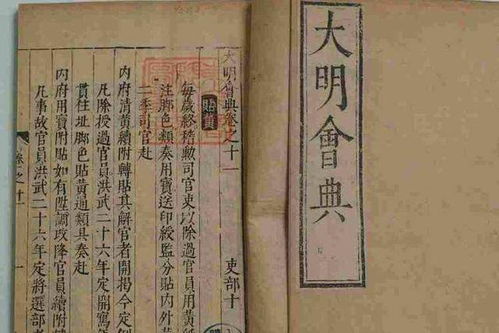 大明會典
大明會典卷之十一
吏部十
貼黃
每歲終稽勳司官吏以除過官員用黃
注腳色類奏用寶送印綬監分貼內外
二季司官赴
內府清黃續附轉貼其解官者開揭今定
凡除授過官員洪武二十六年定開寫
貫住址腳色貼黃通類具奏赴
內府用寶附貼如有陞調改降官員續附
凡事故官員洪武二十六年定將選部
卷之十一
一